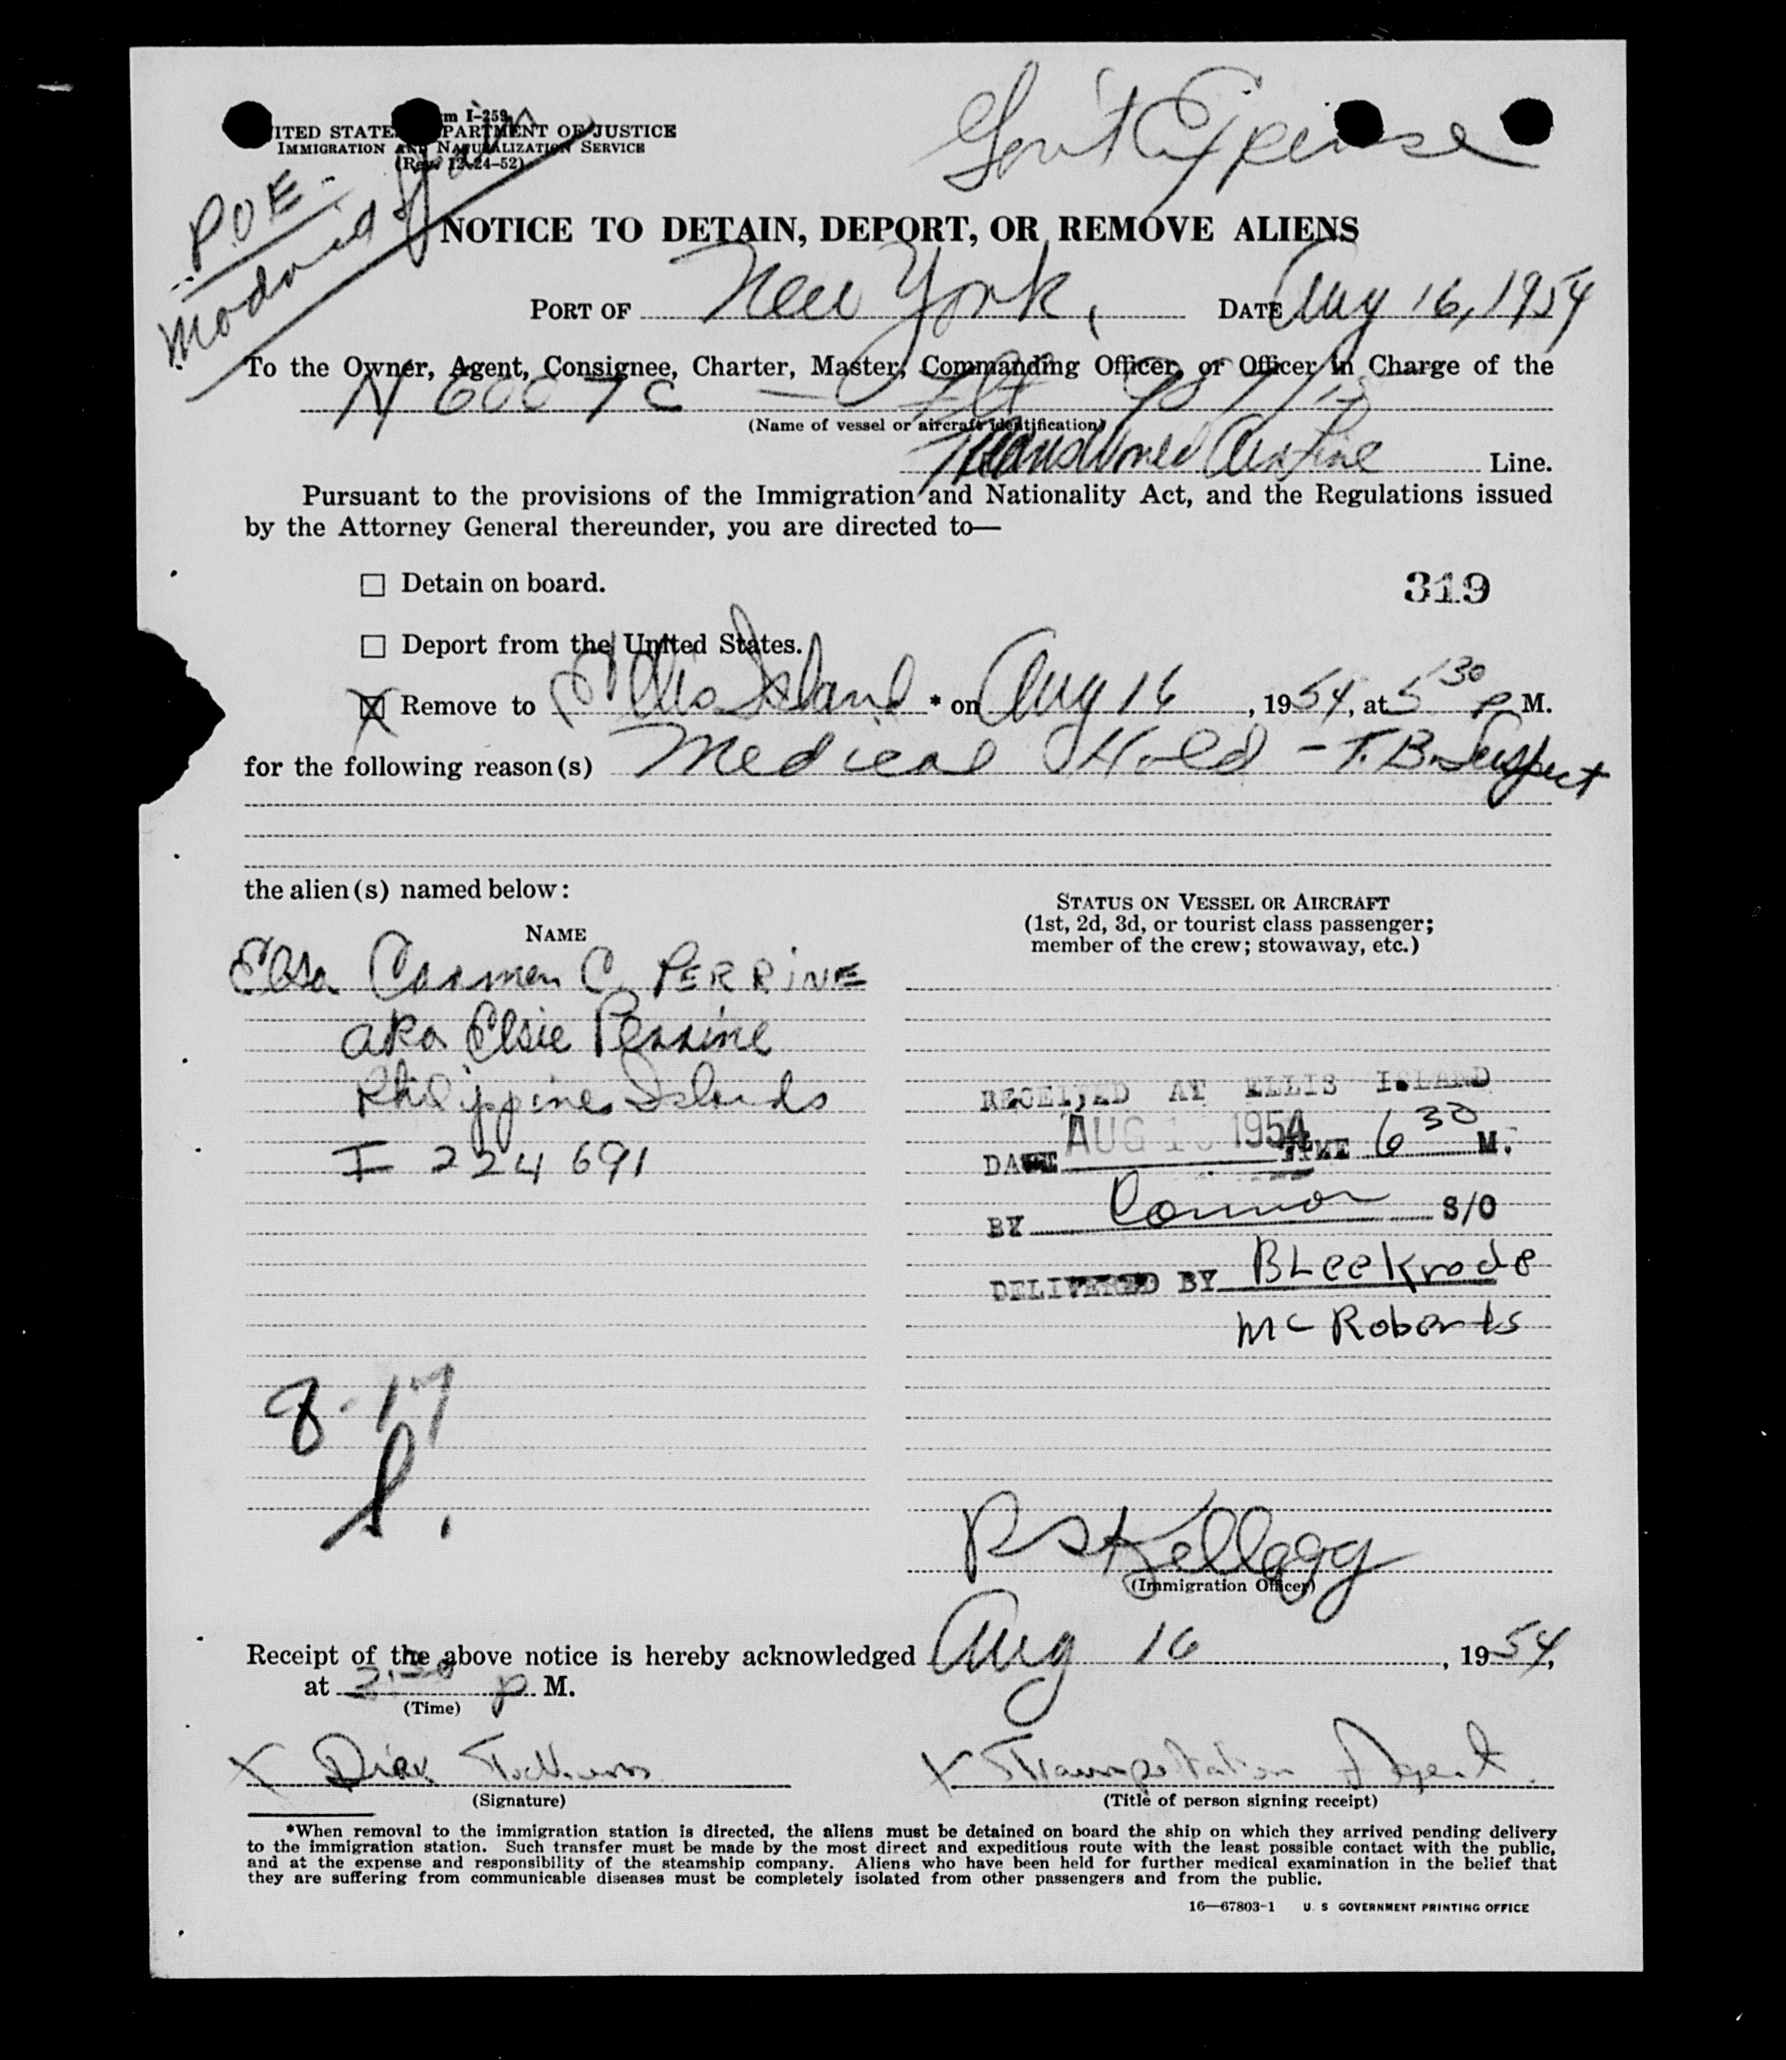 Gov't Expense
m I-259
ITED STATE PARTMENT OF JUSTICE
IMMIGRATION AND NATURALIZATION SERVICE
(Rev. 12-24-52)
P.O.E.
NOTICE TO DETAIN, DEPORT, OR REMOVE ALIENS
PORT OF New York, DATE Aug 16, 1954
To the Owner, Agent, Consignee, Charter, Master, Commanding Officer, or Officer in Charge of the
N 6007 C —
(Name of vessel or aircraft identification)
Line.
Pursuant to the provisions of the Immigration and Nationality Act, and the Regulations issued
by the Attorney General thereunder, you are directed to—
☐ Detain on board.
319
☐ Deport from the United States.
☒ Remove to Ellis Island * on Aug 16, 1954, at 5 30 P M.
for the following reason(s) Medical Hold - T.B. Suspect
the alien(s) named below:
STATUS ON VESSEL OR AIRCRAFT
(1st, 2d, 3d, or tourist class passenger;
member of the crew; stowaway, etc.)
NAME
Elsa Carmen C. PERRINE
aka Elsie Perrine
Philippine Islands
I 224 691
RECEIVED AT ELLIS ISLAND
DATE AUG 1 1954 TIME 6 30 M.
BY Connor S/O
DELIVERED BY BLeeKrode
McRoberts
8-17
R S Kellogg
(Immigration Officer)
Receipt of the above notice is hereby acknowledged Aug 16, 1954,
at :30 p M.
(Time)
X Dirk X Transportation Agent.
(Signature) (Title of person signing receipt)
*When removal to the immigration station is directed, the aliens must be detained on board the ship on which they arrived pending delivery
to the immigration station. Such transfer must be made by the most direct and expeditious route with the least possible contact with the public,
and at the expense and responsibility of the steamship company. Aliens who have been held for further medical examination in the belief that
they are suffering from communicable diseases must be completely isolated from other passengers and from the public.
16—67803-1 U. S. GOVERNMENT PRINTING OFFICE